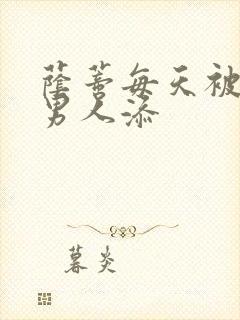 蔭蒂每天被
男人添
暮炎